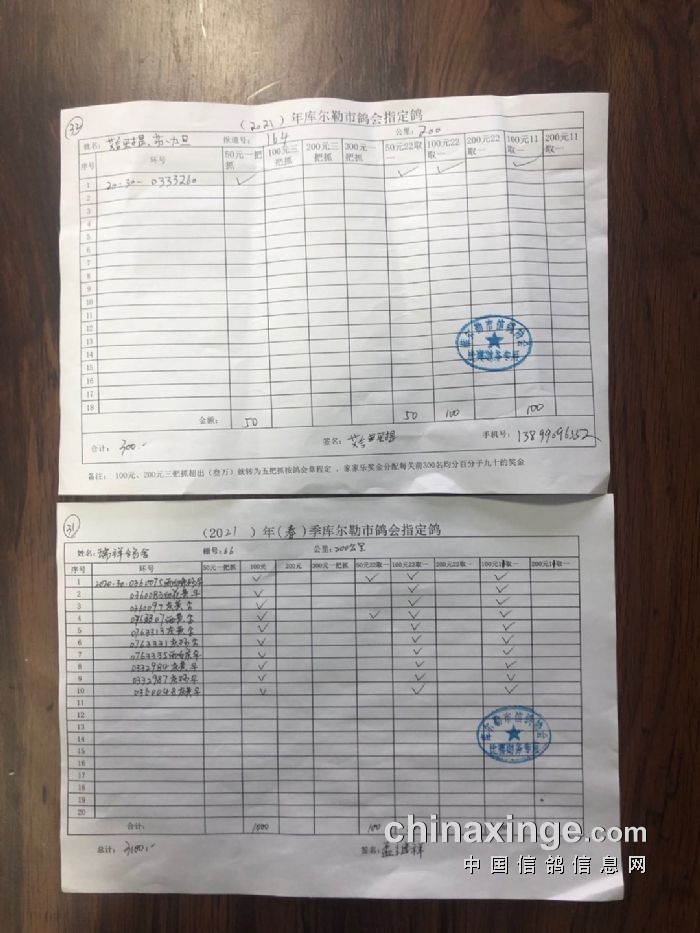 (33)
(2021)年库尔勒市鸽会指定鸽
姓名: 报道号: 164 公里: 200
序号 环号 50元一把抓 100元三把抓 200元三把抓 300元一把抓 50元22取一 100元22取一 200元22取一 100元11取一 200元11取一
1 20-30-0333260 ✓ ✓ ✓ ✓
2
3
4
5
6
7
8
9
10
11
12
13
14
15
16
17
18
金额: 50 50 100 100
合计: 300.- 签名: 手机号:
备注: 100元、200元三把抓超出(叁万)就转为五把抓按鸽会章程定,家家乐奖金分配每关前300名均分百分子九十的奖金
库尔勒市信鸽协会
比赛财务专用
(31)
(2021)年(春)季库尔勒市鸽会指定鸽
姓名: 瑞祥鸽舍 棚号: 66 公里: 200公里
序号 环号 50元一把抓 100元 200元 200元一把抓 50元22取一 100元22取一 200元22取一 100元11取一 200元11取一
1 2020-30-0360075 ✓ ✓ ✓ ✓
2 0360083 ✓ ✓ ✓
3 0360097 ✓ ✓ ✓
4 ✓ ✓ ✓ ✓
5 0763313 ✓ ✓ ✓
6 0763331 ✓ ✓ ✓
7 0763335 ✓ ✓ ✓
8 0332984 ✓ ✓ ✓
9 0332987 ✓ ✓ ✓
10 0360048 ✓ ✓ ✓
11
12
13
14
15
16
17
18
19
20
合计: 1000 100
总计: 3100.- 签名:
库尔勒市信鸽协会
比赛财务专用
chinaxinge.com
中国信鸽信息网